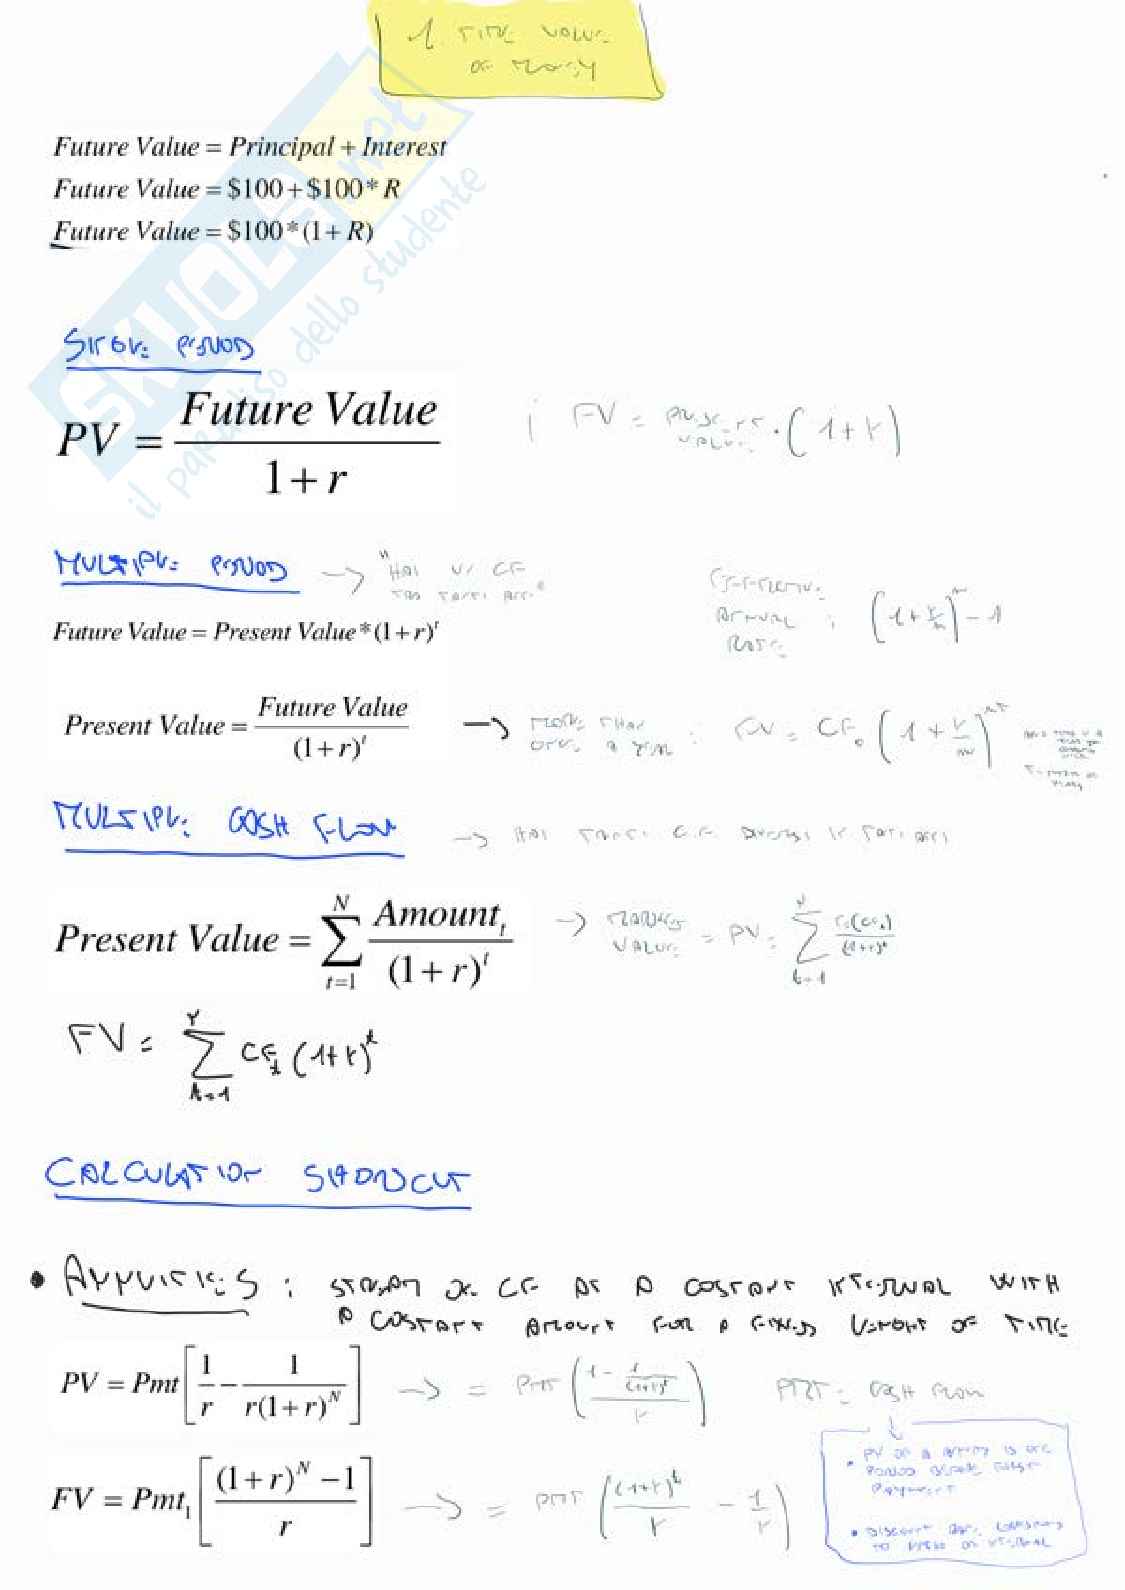 1. TIME VALUE
OF MONEY
Future Value = Principal + Interest
Future Value = $100 + $100 * R
Future Value = $100 * (1 + R)
SKUOLA.net
il paradiso dello studente
SINGLE PERIOD
PV = Future Value / 1 + r
; FV = PRESENT VALUE · (1 + r)
MULTIPLE PERIOD → "HAI 1 CF
TRA TANTI ANNI"
EFFECTIVE
ANNUAL : (1 + r/m)^m - 1
RATE
Future Value = Present Value * (1 + r)^t
Present Value = Future Value / (1 + r)^t → MORE THAN ONCE A YEAR : FV = CF₀ (1 + r/m)^mT
MULTIPLE CASH FLOW → HAI TANTI C.F. DIVERSI IN TANTI ANNI
Present Value = ∑_{t=1}^{N} Amount_t / (1 + r)^t → MARKET VALUE = PV = ∑_{t=1}^{N} / (1+r)^t
FV = ∑_{t=1}^{N} CF_t (1 + r)^t
CALCULATION SHORTCUT
• ANNUITIES : STREAM OF CF AT A COSTANT INTERVAL WITH
A COSTANT AMOUNT FOR A FIXED LENGHT OF TIME
PV = Pmt [1/r - 1/r(1 + r)^N] → = PMT ((1 - 1/(1+r)^t) / r) PMT = CASH FLOW
• PV OF A ANNUITY IS ONE
PERIOD BEFORE FIRST
PAYMENT
FV = Pmt₁ [((1 + r)^N - 1) / r] → = PMT ((1+r)^t / r - 1/r)
• DISCOUNT RATE